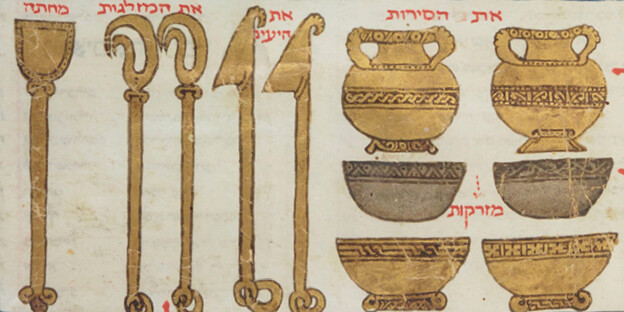 את הסירות
את
היעים
את המזלגות
מחתה
מזרקות